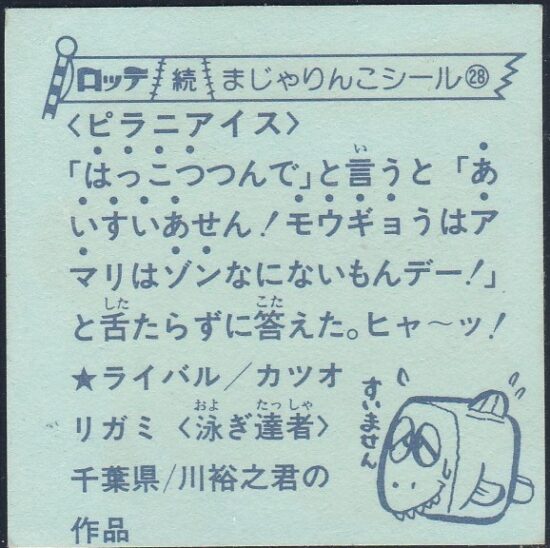 ロッテ 続 まじゃりんこシール㉘
〈ピラニアイス〉
「はっこつつんで」と言うと「あ
いすいあせん！モウギョうはア
マリはゾンなにないもんデー！」
と舌たらずに答えた。ヒャ〜ッ！
★ライバル／カツオ
リガミ〈泳ぎ達者〉
千葉県/川裕之君の
作品
すいません